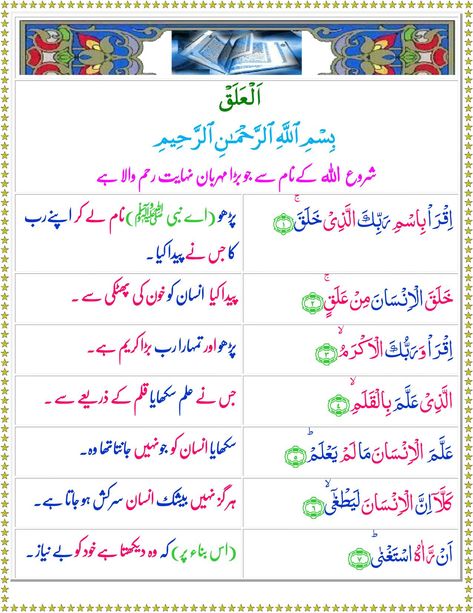 اَلْعَلَقْ
بِسْمِ اللهِ الرَّحْمٰنِ الرَّحِيْمِ
شروع اللہ کے نام سے جو بڑا مہربان نہایت رحم والا ہے
اِقْرَاْ بِاسْمِ رَبِّكَ الَّذِیْ خَلَقَۚ ﴿۱﴾
پڑھو (اے نبی ﷺ) نام لے کر اپنے رب
کا جس نے پیدا کیا۔
خَلَقَ الْاِنْسَانَ مِنْ عَلَقٍۚ ﴿۲﴾
پیدا کیا انسان کو خون کی پھٹکی سے ۔
اِقْرَاْ وَ رَبُّكَ الْاَكْرَمُۙ ﴿۳﴾
پڑھو اور تمہارا رب بڑا کریم ہے ۔
الَّذِیْ عَلَّمَ بِالْقَلَمِۙ ﴿۴﴾
جس نے علم سکھایا قلم کے ذریعے سے ۔
عَلَّمَ الْاِنْسَانَ مَا لَمْ یَعْلَمْؕ ﴿۵﴾
سکھایا انسان کو جو نہیں جانتا تھا وہ۔
كَلَّاۤ اِنَّ الْاِنْسَانَ لَیَطْغٰۤیۙ ﴿۶﴾
ہرگز نہیں بیشک انسان سرکش ہو جاتا ہے۔
اَنْ رَّاٰهُ اسْتَغْنٰیؕ ﴿۷﴾
(اس بناء پر) کہ وہ دیکھتا ہے خود کو بے نیاز۔